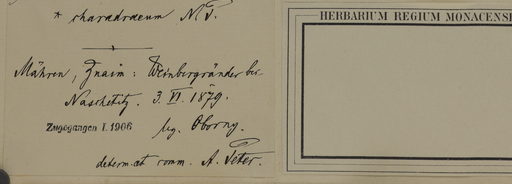 * charadraeum N.P.
Mähren, Znaim: Weinbergränder bei
Naschetitz. 3. VI. 1879.
Zugegangen I. 1906
leg. Oborny.
determ. et comm. A. Peter.
HERBARIUM REGIUM MONACENSE